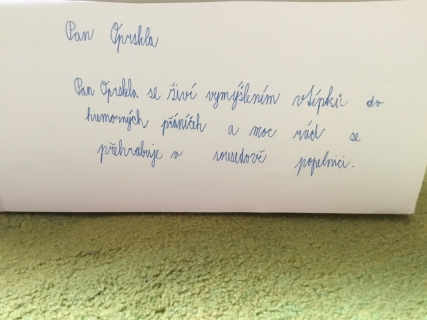 Pan Óprskla
Pan Óprskla se živé vymýšlením vtípků do
humorných přáníček a moc rád se
přehrabuje v sousedově popelnici.